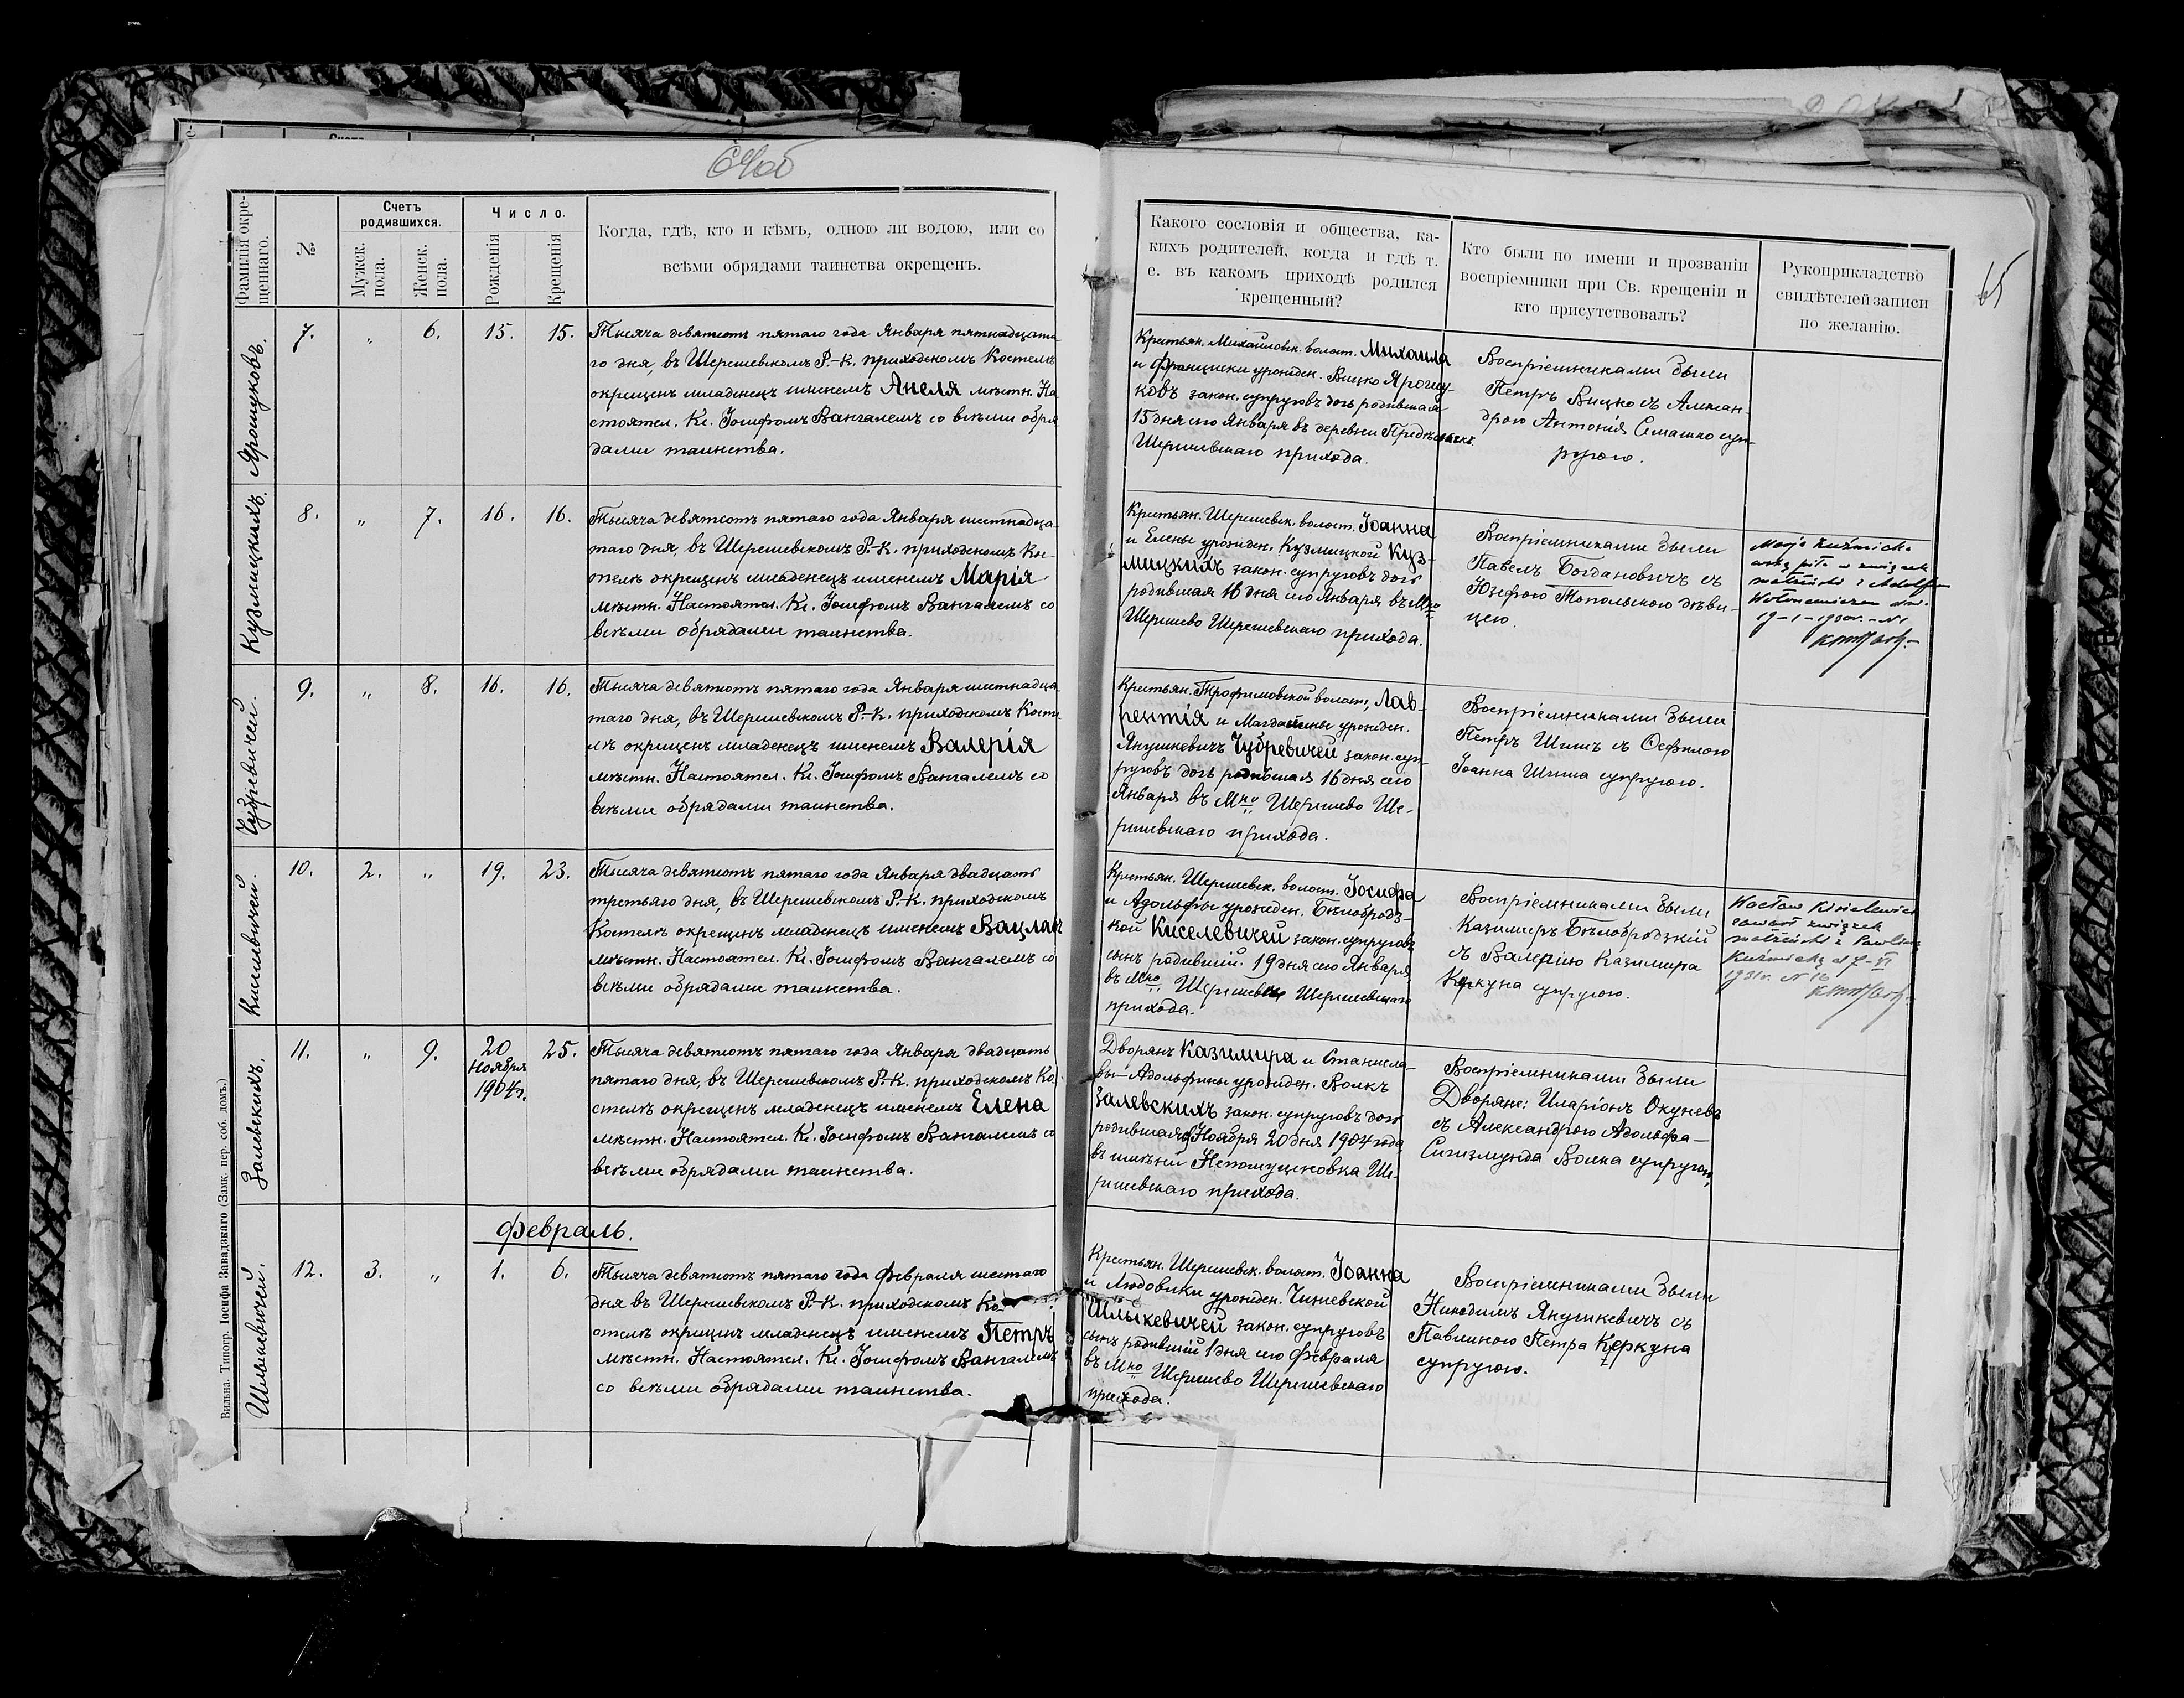 64об
65
Фамилія окре-
щеннаго.
№
Счетъ
родившихся.
Мужск.
пола.
Женск.
пола.
Число.
Рожденія
Крещенія
Когда, гдѣ, кто и кѣмъ, одною ли водою, или со
всѣми обрядами таинства окрещенъ.
Какого сословія и общества, ка-
кихъ родителей, когда и гдѣ т.
е. въ какомъ приходѣ родился
крещенный?
Кто были по имени и прозваніи
воспріемники при Св. крещеніи и
кто присутствовалъ?
Рукоприкладство
свидѣтелей записи
по желанію.
Ярошуковъ.
7. " 6. 15. 15.
Тысяча девятсотъ пятаго года Января пятнадцата
го дня, въ Шерешевскомъ Р.-К. приходскомъ Костелѣ
окрещенъ младенецъ именемъ Анеля мѣстн. На
стоятел. Кс. Іосифомъ Вангалемъ со всѣми обря
дами таинства.
Крестьян. Михайловск. волост. Михаила
и Францишки урожден. Вицко Ярошу-
ковъ закон. супруговъ дочь родившаяся
15 дня сего Января въ деревни
Шерешевскаго прихода.
Воспріемниками были
Петръ Вицко съ Алексан-
дрою Антонія Семашко суп-
ругою.
Кузмицкихъ.
8. " 7. 16. 16.
Тысяча девятсотъ пятаго года Января шестнадца-
таго дня, въ Шерешевскомъ Р.-К. приходскомъ Кос-
телѣ окрещенъ младенецъ именемъ Марія
мѣстн. Настоятел. Кс. Іосифомъ Вангалемъ со
всѣми обрядами таинства.
Крестьян. Шерешевск. волост. Іоанна
и Елены урожден. Кузмицкой Куз-
мицкихъ закон. супруговъ дочь
родившая 16 дня сего Января въ Мко
Шерешево Шерешевскаго прихода.
Воспріемниками были
Павелъ Богдановичъ съ
Юзефою Топольскою дѣви-
цею.
małżeński z Adolfem
19-1-1930r. - N 1
Чубревичей.
9. " 8. 16. 16.
Тысяча девятсотъ пятаго года Января шестнадца
таго дня, въ Шерешевскомъ Р.-К. приходскомъ Косте-
лѣ окрещенъ младенецъ именемъ Валерія
мѣстн. Настоятел. Кс. Іосифомъ Вангалемъ со
всѣми обрядами таинства.
Крестьян. Трофимовской волост, Лав-
рентія и Магдалены урожден.
Янушкевичъ Чубревичей закон. суп-
руговъ дочь родившая 16 дня сего
Января въ Мко Шерешево Ше-
решевскаго прихода.
Воспріемниками были
Петръ Шишъ съ
Іоанна Шиша супругою.
Киселевичей.
10. 2. " 19. 23.
Тысяча девятсотъ пятаго года Января двадцать
третьяго дня, въ Шерешевскомъ Р.-К. приходскомъ
Костелѣ окрещенъ младенецъ именемъ Вацлавъ
мѣстн. Настоятел. Кс. Іосифомъ Вангалемъ со
всѣми обрядами таинства.
Крестьян. Шерешевск. волост. Іосифа
и Адольфы урожден. Бѣлобродз-
кой Киселевичей закон. супруговъ
сынъ родившій. 19 дня сего Января
въ Мко Шерешевѣ Шерешевскаго
прихода.
Воспріемниками были
Казимиръ Бѣлобродзкій
съ Валерію Казимира
Керкуна супругою.
Wacław Kisielewicz
zawarł związek
małżeński z Pauliną
Kuźmicką d 7-VI
1931r. N 16
Залевскихъ.
11. " 9. 20 25.
Ноября
1904 г.
Тысяча девятсотъ пятаго года Января двадцать
пятаго дня, въ Шерешевскомъ Р.-К. приходскомъ Ко-
стелѣ окрещенъ младенецъ именемъ Елена
мѣстн. Настоятел. Кс. Іосифомъ Вангалемъ со
всѣми обрядами таинства.
Дворянъ Казимира и Станисла-
вы-Адольфины урожден. Волкъ
Залевскихъ закон. супруговъ дочь
родившаяся Ноября 20 дня 1904 года
въ имѣніи Непомуценовка Ше-
решевскаго прихода.
Воспріемниками были
Дворяне: Иларіонъ Окуневъ
съ Александрою Адольфа-
Сигизмунда Волка супругою.
Февраль.
Шлыкевичей.
12. 3. " 1. 6.
Тысяча девятсотъ пятаго года Февраля шестаго
дня въ Шерешевскомъ Р.-К. приходскомъ Ко-
стелѣ окрещенъ младенецъ именемъ Петръ
мѣстн. Настоятел. Кс. Іосифомъ Вангалемъ
со всѣми обрядами таинства.
Крестьян. Шерешевск. волост. Іоанна
и Людовики урожден. Чижевской
Шлыкевичей закон. супруговъ
сынъ родившій 1 дня сего Февраля
въ Мко Шерешево Шерешевскаго
прихода.
Воспріемниками были
Никодимъ Янушкевичъ съ
Павлиною Петра Керкуна
супругою.
Вильна. Типогр. Іосифа Завадзкаго (Замк. пер. соб. домъ.)